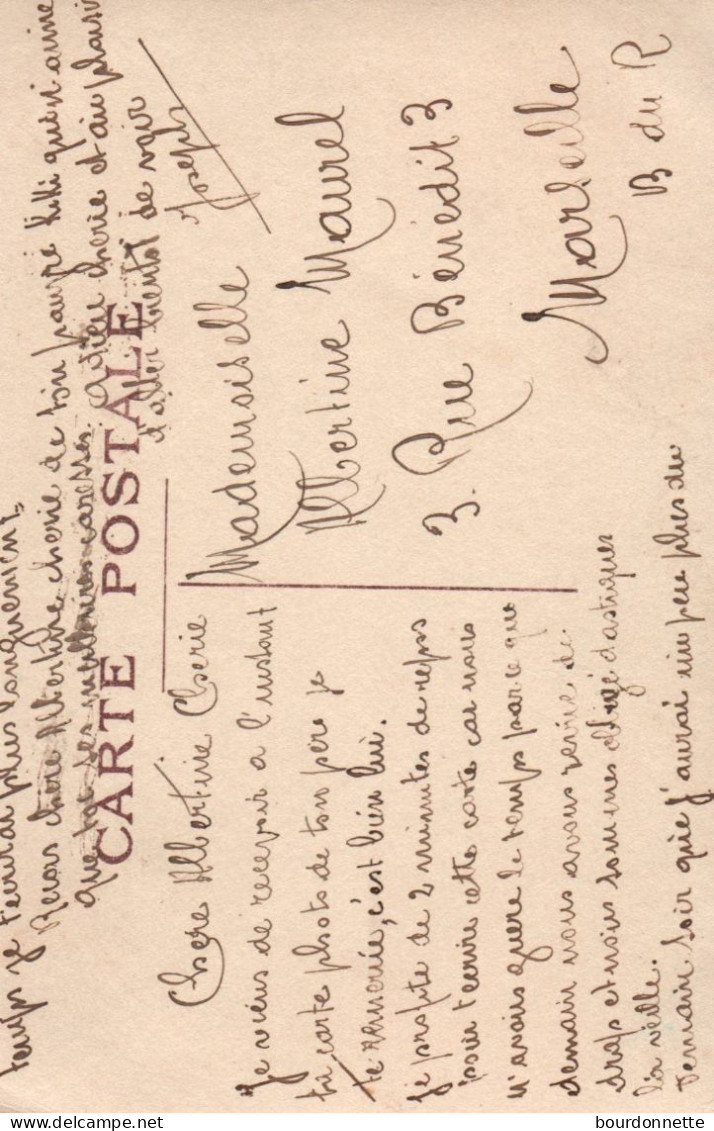 CARTE POSTALE
Chere Albertine Cherie
Je viens de recevoir a l'instant
ta carte photo de ton pere je
te remercie, c'est bien lui.
Je profite de 2 minutes de repos
pour t'ecrire cette carte car nous
n'avons guere le temps parce que
demain nous avons revue de
draps et nous sommes obligé d'astiquer
la veille.
Demain soir que j'aurai un peu plus du
temps je t'ecrirai plus longuement.
Recois chere Albertine cherie de ton pauvre Titi qui t'aime
que toi ses meilleures caresses. Adieu cherie et au plaisir
d'aller bientot de voir
Joseph
Mademoiselle
Albertine Maurel
3. Rue Bénédit 3
Marseille
B du R
delcampe.net
bourdonnette